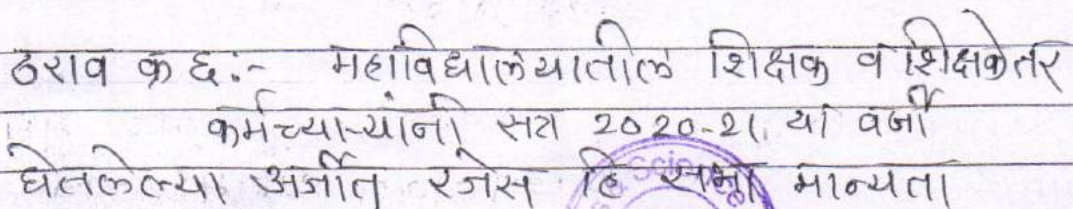 ठराव क्र ६:- महाविद्यालयातील शिक्षक व शिक्षकेतर
कर्मच्या-यांनी सत्र 2020-21. या वर्जी
घेतलेल्या अर्जीत रजेस हि सभा मान्यता